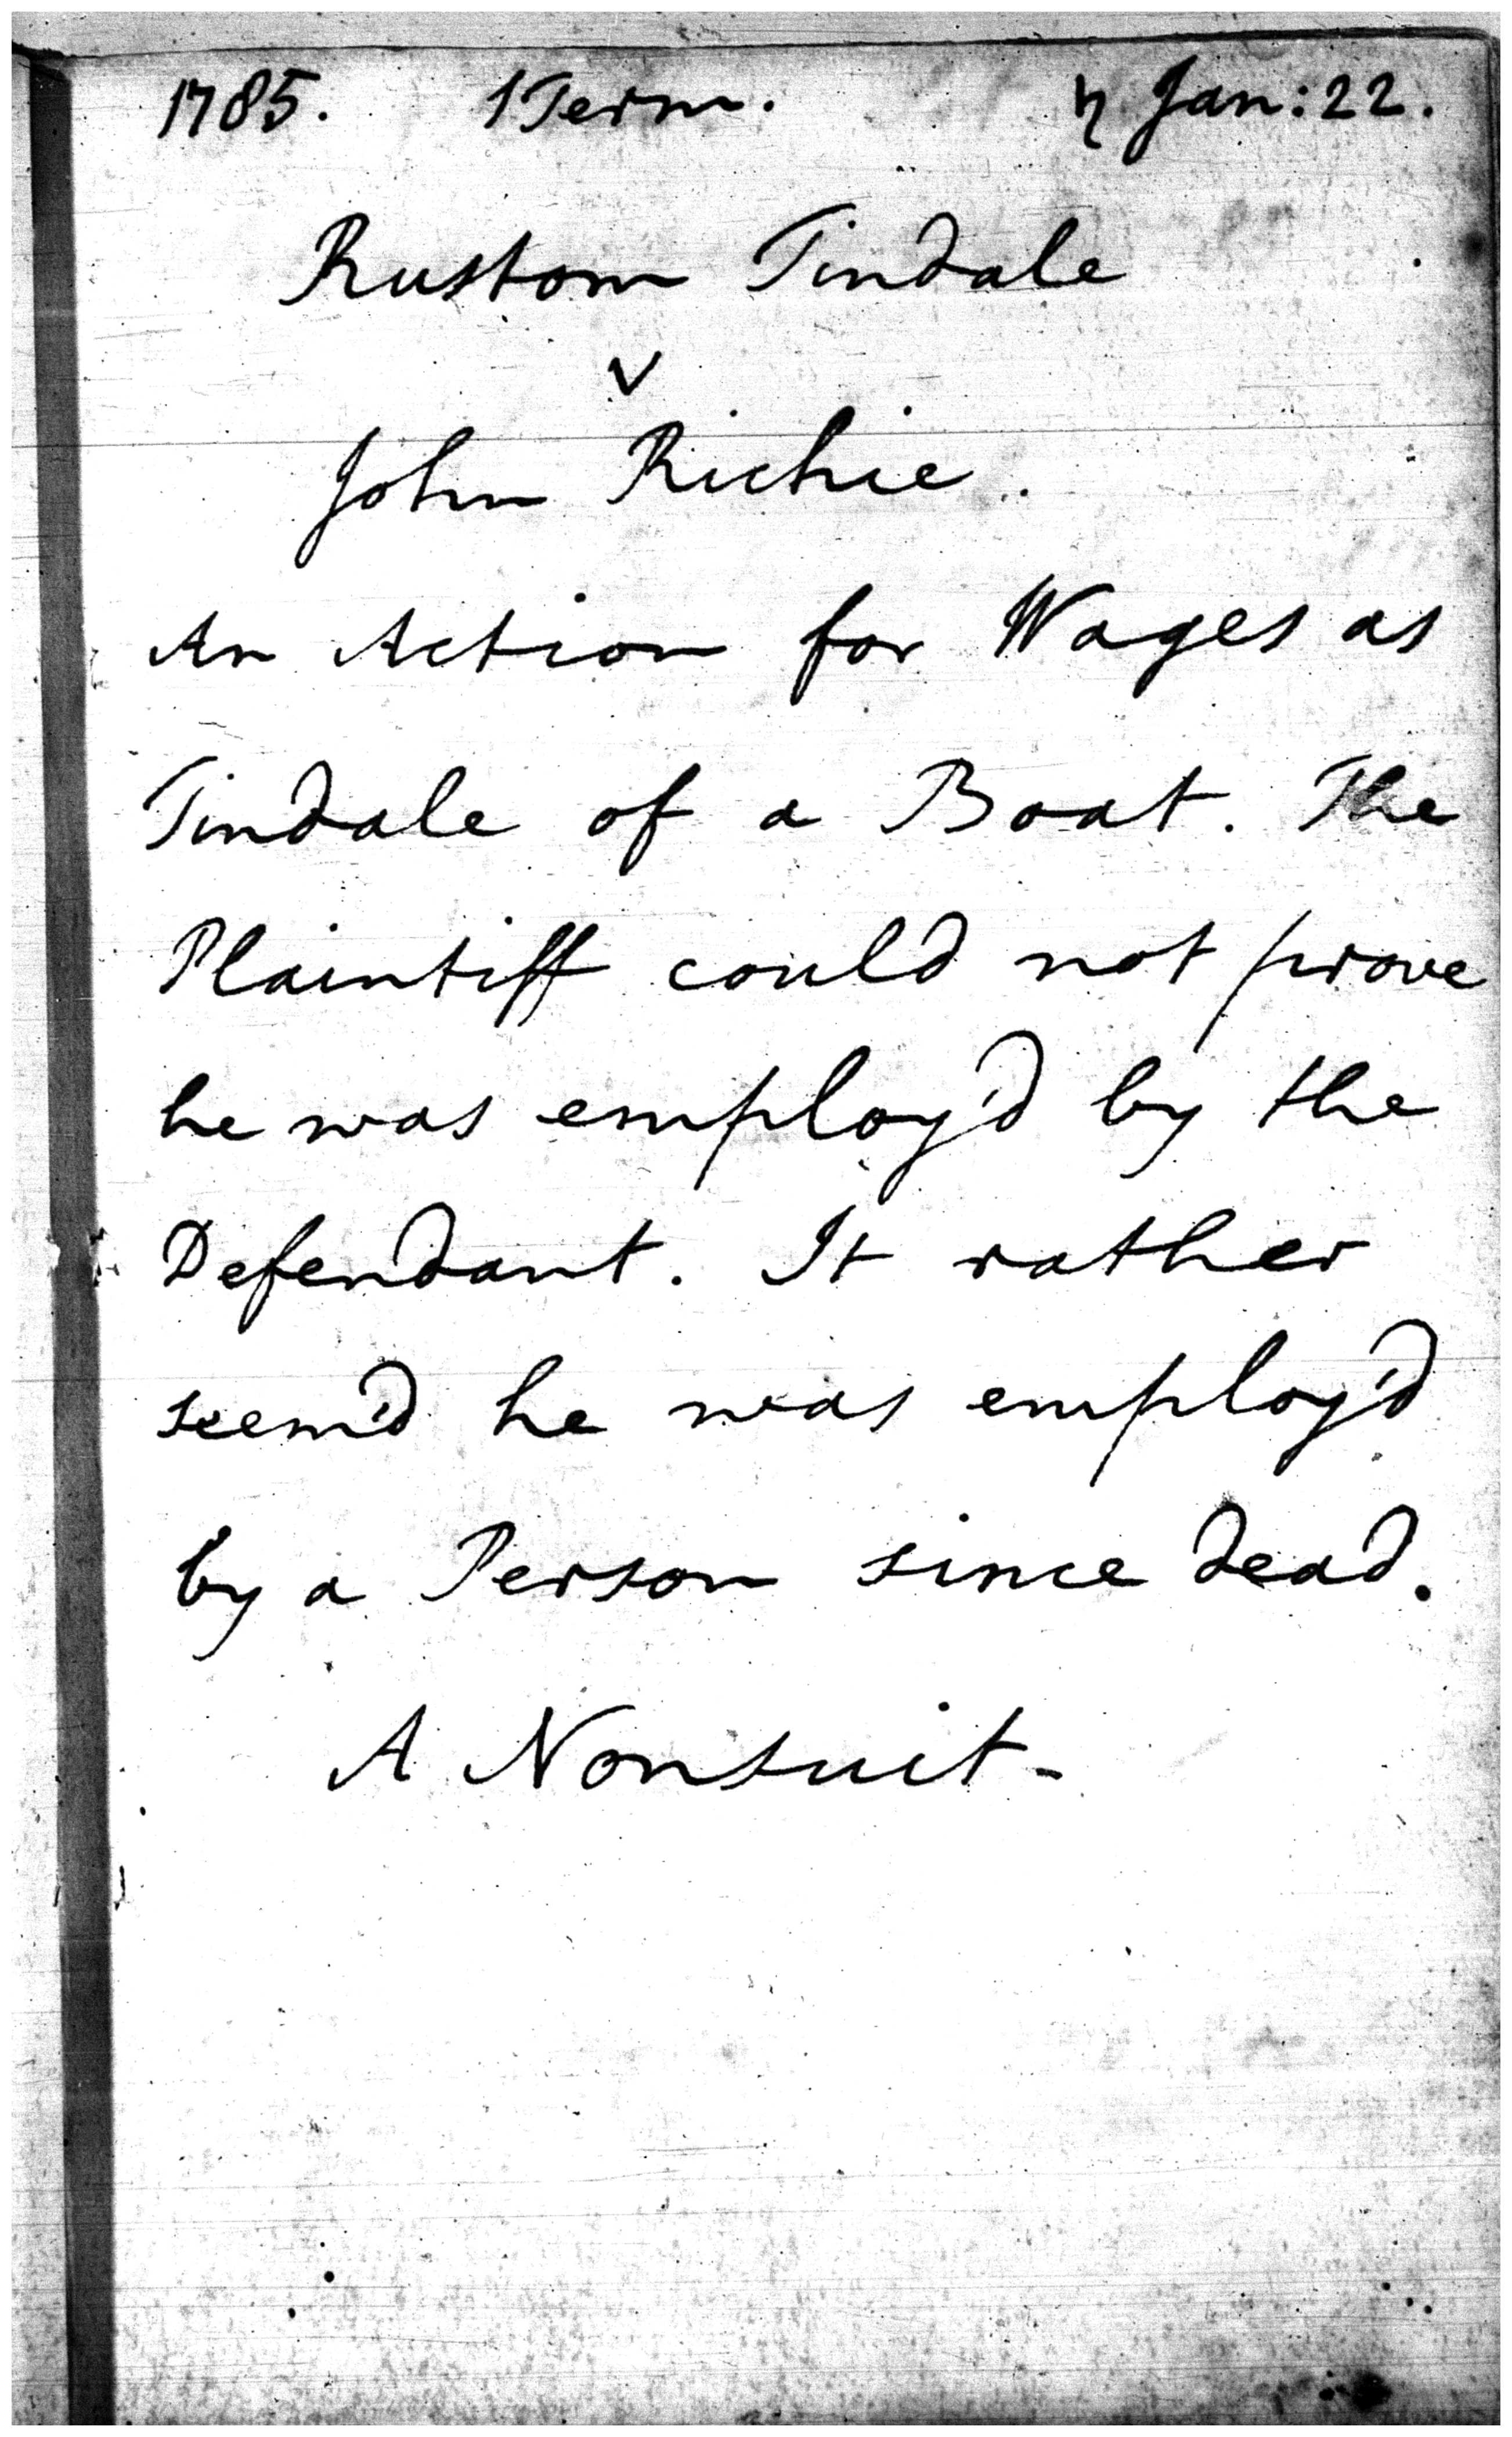 1785. 1 Term. ♄ Jan: 22.
Rustom Tindale
v
John Richie.
An Action for Wages as
Tindale of a Boat. The
Plaintiff could not prove
he was employ'd by the
Defendant. It rather
seem'd he was employ'd
by a Person since dead.
A Nonsuit-